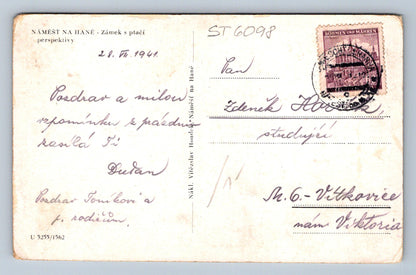 NÁMĚŠŤ NA HANÉ - Zámek s ptačí
perspektivy
28. VII 1941.
Pozdrav a milou
vzpomínku z prázdnin
zasílá Ti
Dušan
Pozdrav Toníkovi a
p. rodičům.
U 5255/1562
Nákl. Vítězslav Houdek, Náměšť na Hané
ST6098
BÖHMEN UND MÄHREN
Pan
Zdeněk
studující
M.O.-Vítkovice
nám Viktoria